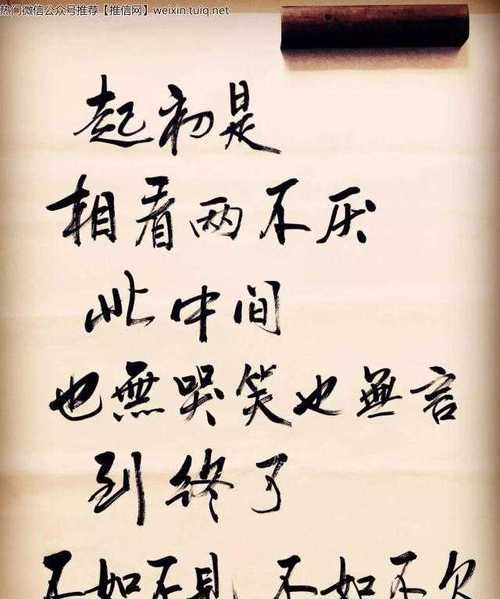 热门微信公众号推荐【推信网】weixin.tuiq.net
起初是
相看两不厌
此中间
也無哭笑也無言
到终了
不如不見 不如不欠